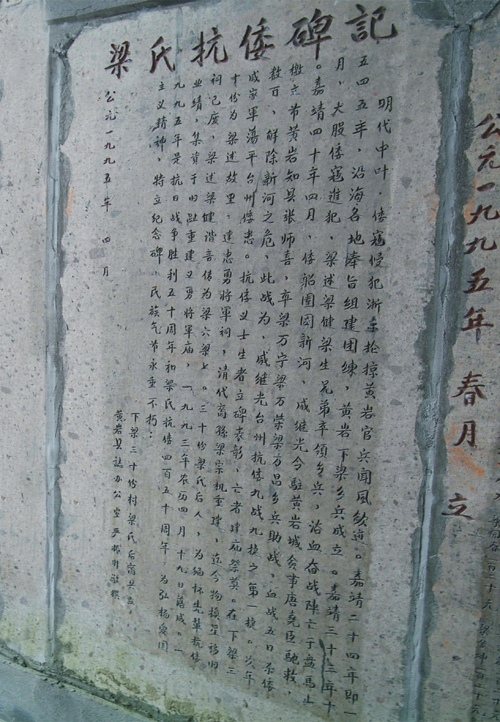 梁氏抗倭碑记
明代中叶，倭寇侵犯浙东抢掠黄岩官兵闻风
嘉靖二十四年即一
五四五年，沿海各地奉旨组建团练，黄岩下梁乡兵成立。嘉靖三十三年十
月，大股倭寇进犯，梁述梁健梁生兄弟率领乡兵，浴血奋战阵亡于
。嘉靖四十年四月，倭船围困新河，戚继光令驻黄岩城佥事唐尧臣驰救，
檄六节黄岩知县张师喜，率梁万宁梁万荣梁万昌乡兵助战，血战五日杀倭
数百，解除新河之危，此战为，戚继光台州抗倭九战九捷之第一捷。次年
戚家军荡平台州倭患。抗倭义士生者立碑表彰，亡者建庙祭奠。在下梁三
十份为梁述故里，建忠勇将军祠，清代裔孙梁宗机重建，迄今物换星移旧
祠已废，梁述梁健谐音传为梁六梁七。三十份梁氏后人，为缅怀先辈抗倭
业绩，集资于旧趾重建卫勇将军庙，一九九三年农历四月十九日落成。一
九九五年是抗日战争胜利五十周年和梁氏抗倭四百五十周年，为弘扬爱国
主义精神，特立纪念碑，民族气节永垂不朽：
下梁三十份村梁氏后裔共立
黄岩县志办公室严
公元一九九五年 四月
公元一九九五年 春月 立